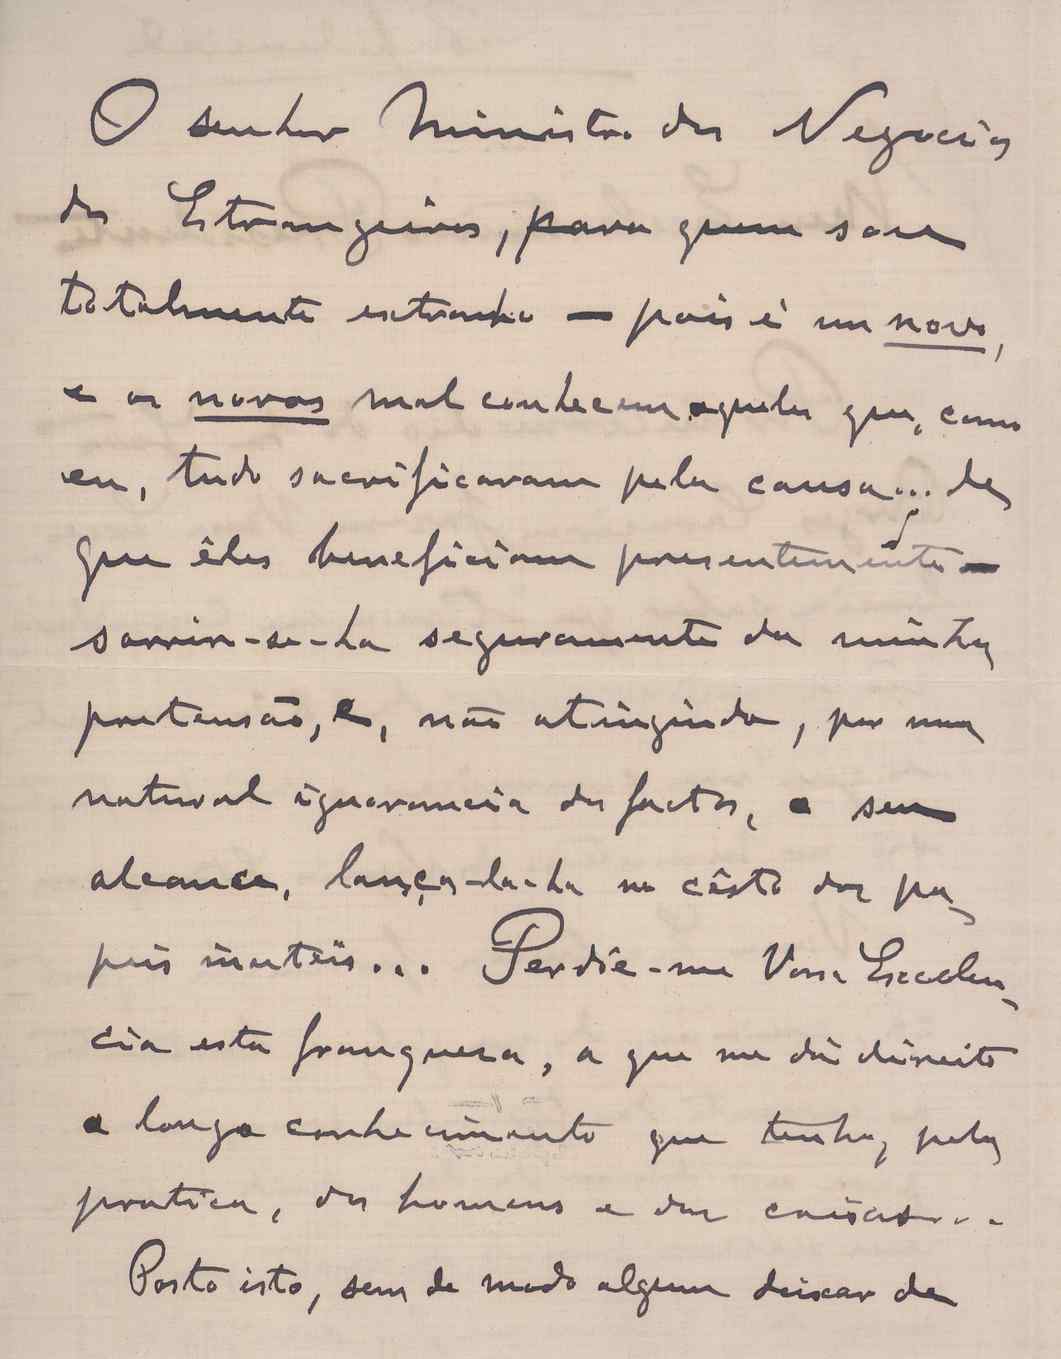 O senhor Ministro dos Negocios
dos Estrangeiros, para quem sou
totalmente extranho — pois é um novo,
e os novos mal conhecem aqueles que, como
eu, tudo sacrificaram pela causa... de
que êles beneficiam presentemente —
sorrir-se-ha seguramente da minha
pretensão, e, não atingindo, por uma
natural ignorancia dos factos, o seu
alcance, lança-la-ha no cêsto dos pa-
peis inuteis... Perdôe-me Vossa Excelen-
cia esta franqueza, a que me dá direito
o longo conhecimento que tenho, pela
pratica, dos homens e das coisas...
Posto isto, sem de modo algum deixar de